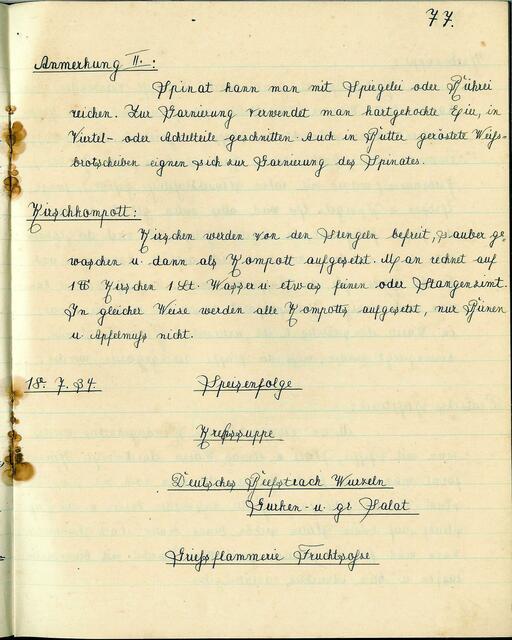 77.
Anmerkung II.:
Spinat kann man mit Spiegelei oder Rührei
reichen. Zur Garnierung verwendet man hartgekochte Eier, in
Viertel- oder Achtelteile geschnitten. Auch in Butter geröstete Weiß-
brotscheiben eignen sich zur Garnierung des Spinates.
Kirschkompott:
Kirschen werden von den Stengeln befreit, sauber ge
waschen u. dann als Kompott aufgesetzt. Man rechnet auf
1 ℔ Kirschen 1 Lt. Wasser u. etwas feinen oder Stangenzimt.
In gleicher Weise werden alle Kompotts aufgesetzt, nur Birnen
u Apfelmuß nicht.
18. 7. 34. Speisenfolge
Kreßsuppe
Deutsches Beefsteack Wurzeln
Gurken- u. gr Salat
Griesflammerie Fruchtsoße